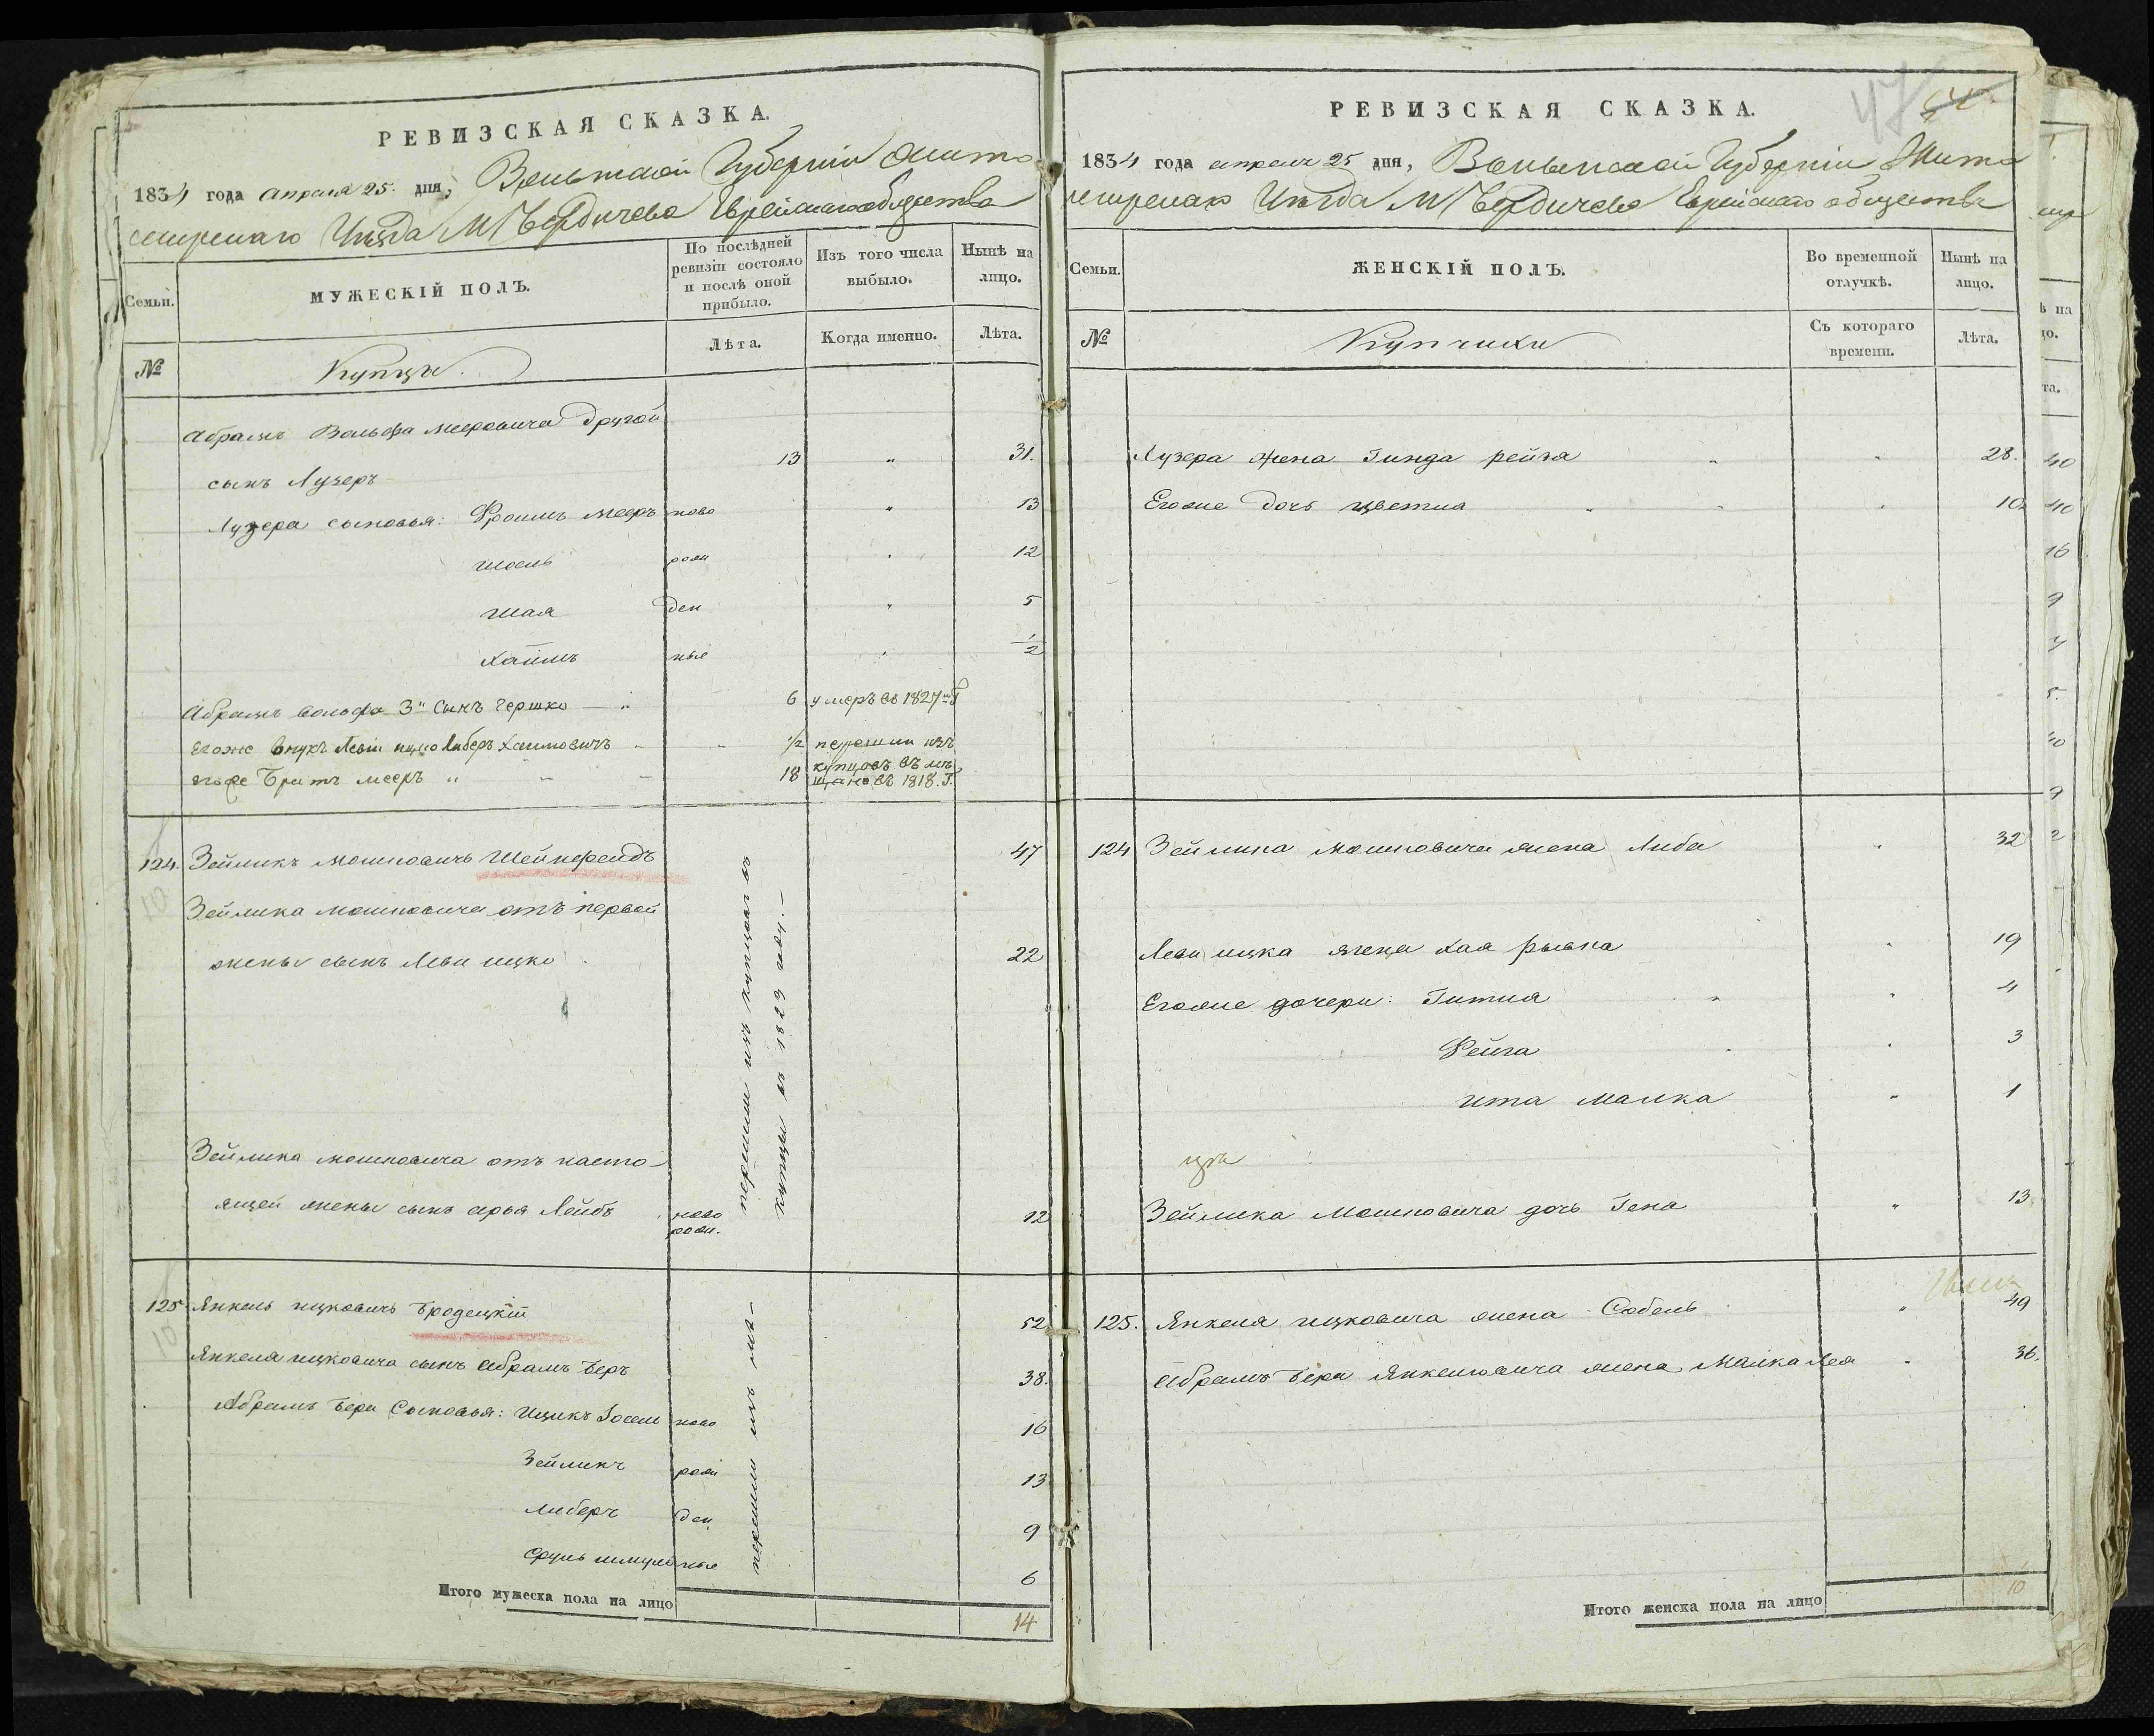 РЕВИЗСКАЯ СКАЗКА.
1834 года апреля 25. дня, Волынской Губерніи Жито
мирскаго Уезда М Бердичева Еврейскаго общества
Семьи.
МУЖЕСКІЙ ПОЛЪ.
По послѣдней ревизіи состояло и послѣ оной прибыло.
Изъ того числа выбыло.
Нынѣ на лицо.
№
Купцы.
Лѣта.
Когда именно.
Лѣта.
Абрамъ Вольфа Мееровича другой
сынъ Лузеръ 13 " 31.
Лузера сыновья: Фроимъ Мееръ ново " 13
Иосль рож " 12
Шая ден " 5
Хаимъ ные " 1/2
Абрамъ Вольфа 3й Сынъ Гершко — " 6 умеръ въ 1827м Г
Егоже внукъ Левы ицко Либеръ Хаимовичъ " " 1/2 перешли изъ
егоже Братъ мееръ " — — 18 купцовъ въ мѣ
щане въ 1818. Г.
124. Зейликъ Мошковичъ Шейнфендъ 47
Зейлика Мошковича отъ первой
жены сынъ Леви ицко 22
Зейлика мошковича отъ насто-
ящей жены сынъ арья Лейбъ ново рож. 12
перешли изъ купцовъ въ
купцы въ 1829 году.—
125. Янкель ицковичъ Бродецкій 52
Янкеля ицковича сынъ Абрамъ Беръ 38.
Абрамъ Бера Сыновья: Ицикъ Іосель ново 16
Зейликъ рож 13
Либеръ ден 9
Сруль шмуль ные 6
перешли изъ мѣ—
Итого мужеска пола на лицо 14
47
РЕВИЗСКАЯ СКАЗКА.
1834 года апреля 25 дня, Волынской Губерніи Жито
мирскаго Уезда М Бердичева Еврейскаго общества
Семьи.
ЖЕНСКІЙ ПОЛЪ.
Во временной отлучкѣ.
Нынѣ на лицо.
№
Купчихи
Съ котораго времени.
Лѣта.
Лузера жена Гинда рейза " " 28.
Егоже дочь цветна " " 10.
124 Зейлика Мошковича жена Либа " 32
Леви ицка жена Хая рывка " 19
Егоже дочери: Гитля " " 4
Фейга " " 3
ита малка " 1
Зейлика Мошковича дочь Гена " 13
125. Янкеля ицковича жена Собель " 49
Абрамъ Бера Янкелювича жена Малка Лея " 36.
Итого женска пола на лицо 10